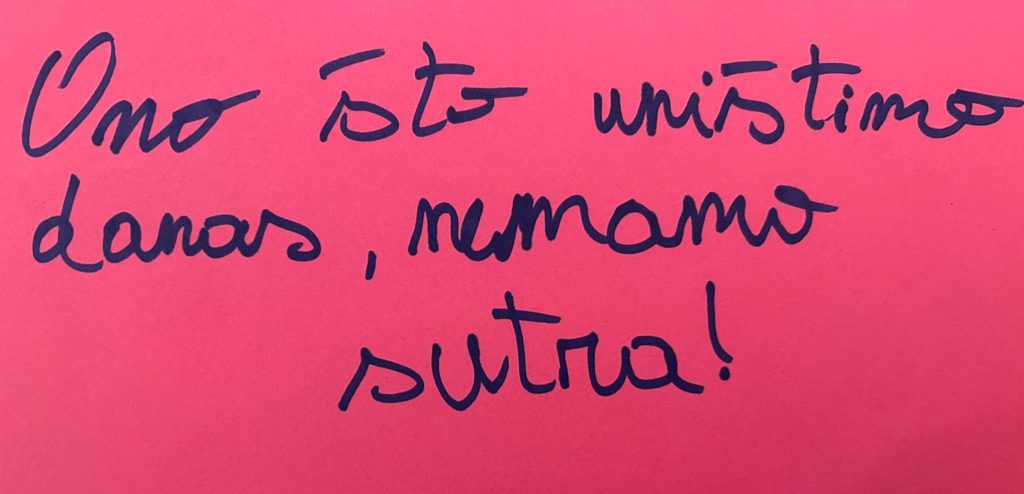 Ono što uništimo
danas, nemamo
sutra!